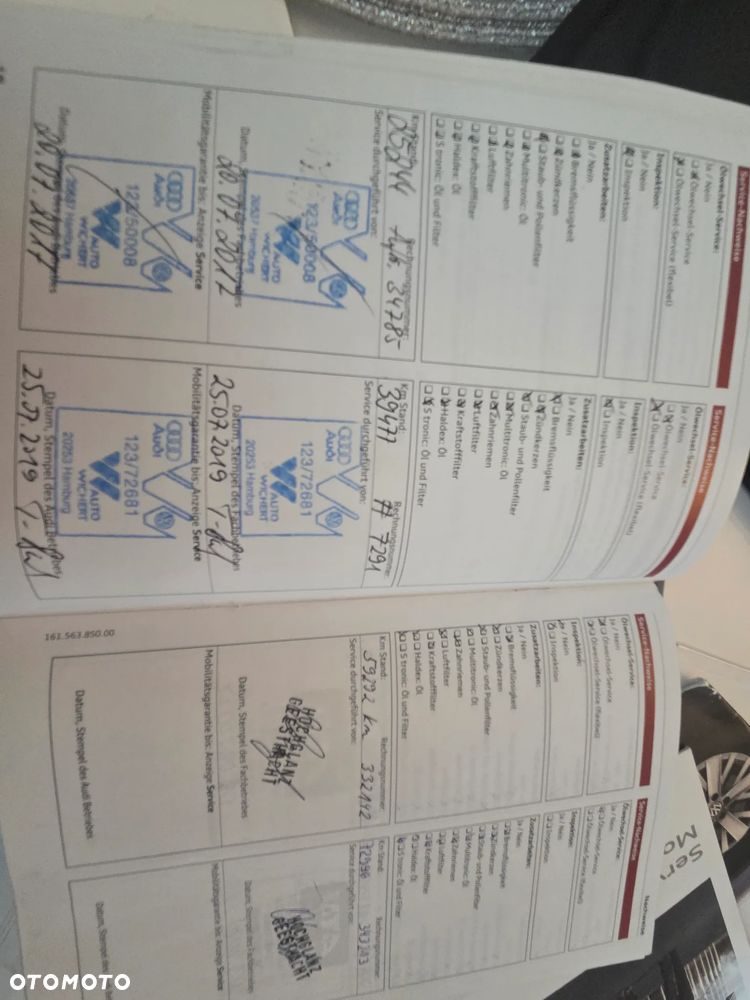 Service-Nachweise
Ölwechsel-Service:
Ja / Nein
Ölwechsel-Service
Ölwechsel-Service (flexibel)
Inspektion:
Ja / Nein
Inspektion
Zusatzarbeiten:
Ja / Nein
Bremsflüssigkeit
Zündkerzen
Staub- und Pollenfilter
Multitronic: Öl
Zahnriemen
Luftfilter
Kraftstofffilter
Haldex: Öl
S tronic: Öl und Filter
Rechnungsnummer:
34785
Service durchgeführt von:
Audi
123/50008
AUTO
WICHERT
20537 Hamburg
Mobilitätsgarantie bis: Anzeige Service
Audi
123/50008
AUTO
WICHERT
20537 Hamburg
Service-Nachweise
Ölwechsel-Service:
Ja / Nein
Ölwechsel-Service
Ölwechsel-Service (flexibel)
Inspektion:
Ja / Nein
Inspektion
Zusatzarbeiten:
Ja / Nein
Bremsflüssigkeit
Zündkerzen
Staub- und Pollenfilter
Multitronic: Öl
Zahnriemen
Luftfilter
Kraftstofffilter
Haldex: Öl
S tronic: Öl und Filter
Km Stand: Rechnungsnummer:
39411 7291
Service durchgeführt von:
Audi
123/72681
AUTO
WICHERT
20253 Hamburg
Datum, Stempel des Fachbetriebes
25.07.2019
Mobilitätsgarantie bis: Anzeige Service
Audi
123/72681
AUTO
WICHERT
20253 Hamburg
Datum, Stempel des Audi Betriebes
25.07.2019
161.563.850.00
Service-Nachweise
Ölwechsel-Service:
Ja / Nein
Ölwechsel-Service
Ölwechsel-Service (flexibel)
Inspektion:
Ja / Nein
Inspektion
Zusatzarbeiten:
Ja / Nein
Bremsflüssigkeit
Zündkerzen
Staub- und Pollenfilter
Multitronic: Öl
Zahnriemen
Luftfilter
Kraftstofffilter
Haldex: Öl
S tronic: Öl und Filter
Km Stand: Rechnungsnummer:
59292 km 332142
Service durchgeführt von:
HOCHGLANZ
GEESTHACHT
Datum, Stempel des Fachbetriebes
Mobilitätsgarantie bis: Anzeige Service
Datum, Stempel des Audi Betriebes
Nachweise
Service-Nachweise
Ölwechsel-Service:
Ja / Nein
Ölwechsel-Service
Ölwechsel-Service (flexibel)
Inspektion:
Ja / Nein
Inspektion
Zusatzarbeiten:
Ja / Nein
Bremsflüssigkeit
Zündkerzen
Staub- und Pollenfilter
Multitronic: Öl
Zahnriemen
Luftfilter
Kraftstofffilter
Haldex: Öl
S tronic: Öl und Filter
Km Stand: Rechnungsnummer:
72996 343243
Service durchgeführt von:
HOCHGLANZ
GEESTHACHT
Datum, Stempel des Fachbetriebes
Mobilitätsgarantie bis: Anzeige Service
Datum, Stempel des Audi Betriebes
OTOMOTO